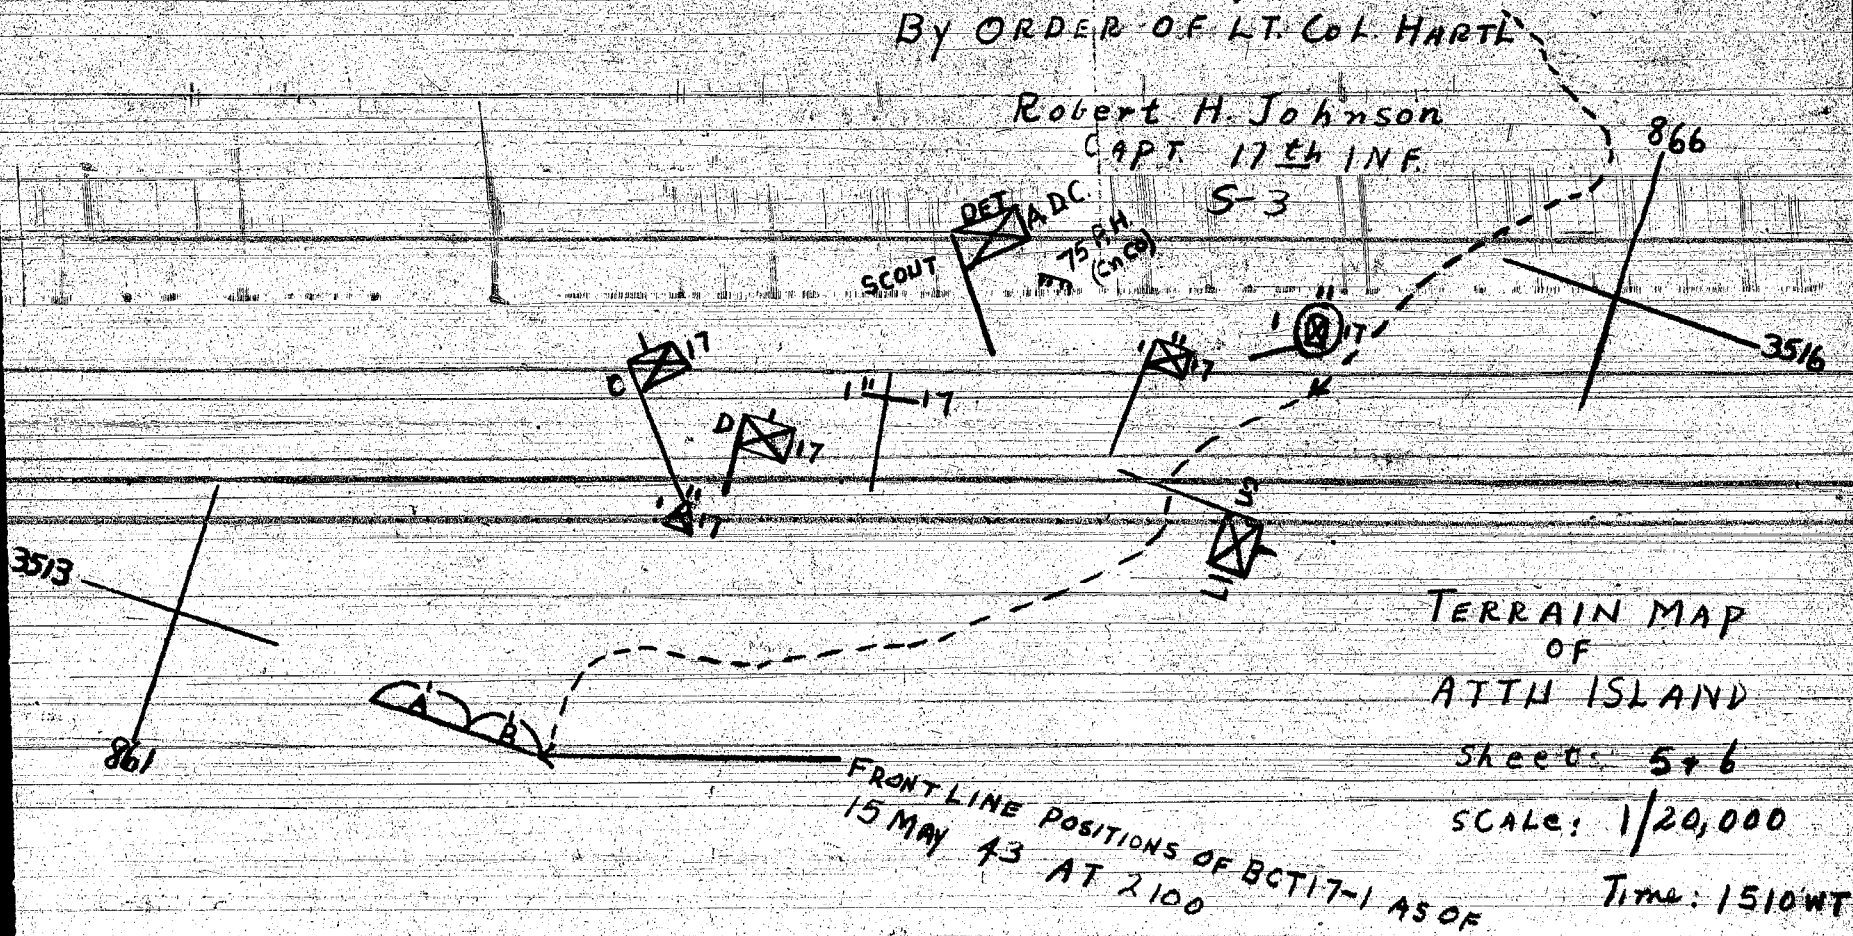 By ORDER OF LT. COL. HARTL
Robert H. Johnson
CAPT. 17th INF.
S-3
866
3516
DET
A.D.C.
SCOUT
75 P.H.
(Cn Co)
C 17
D 17
1" 17
1" 17
1" 17
1" 17
17
3513
861
A
B
FRONT LINE POSITIONS OF BCT17-1 AS OF
15 MAY 43 AT 2100
TERRAIN MAP
OF
ATTU ISLAND
Sheet: 5 + 6
SCALE: 1/20,000
Time: 1510WT